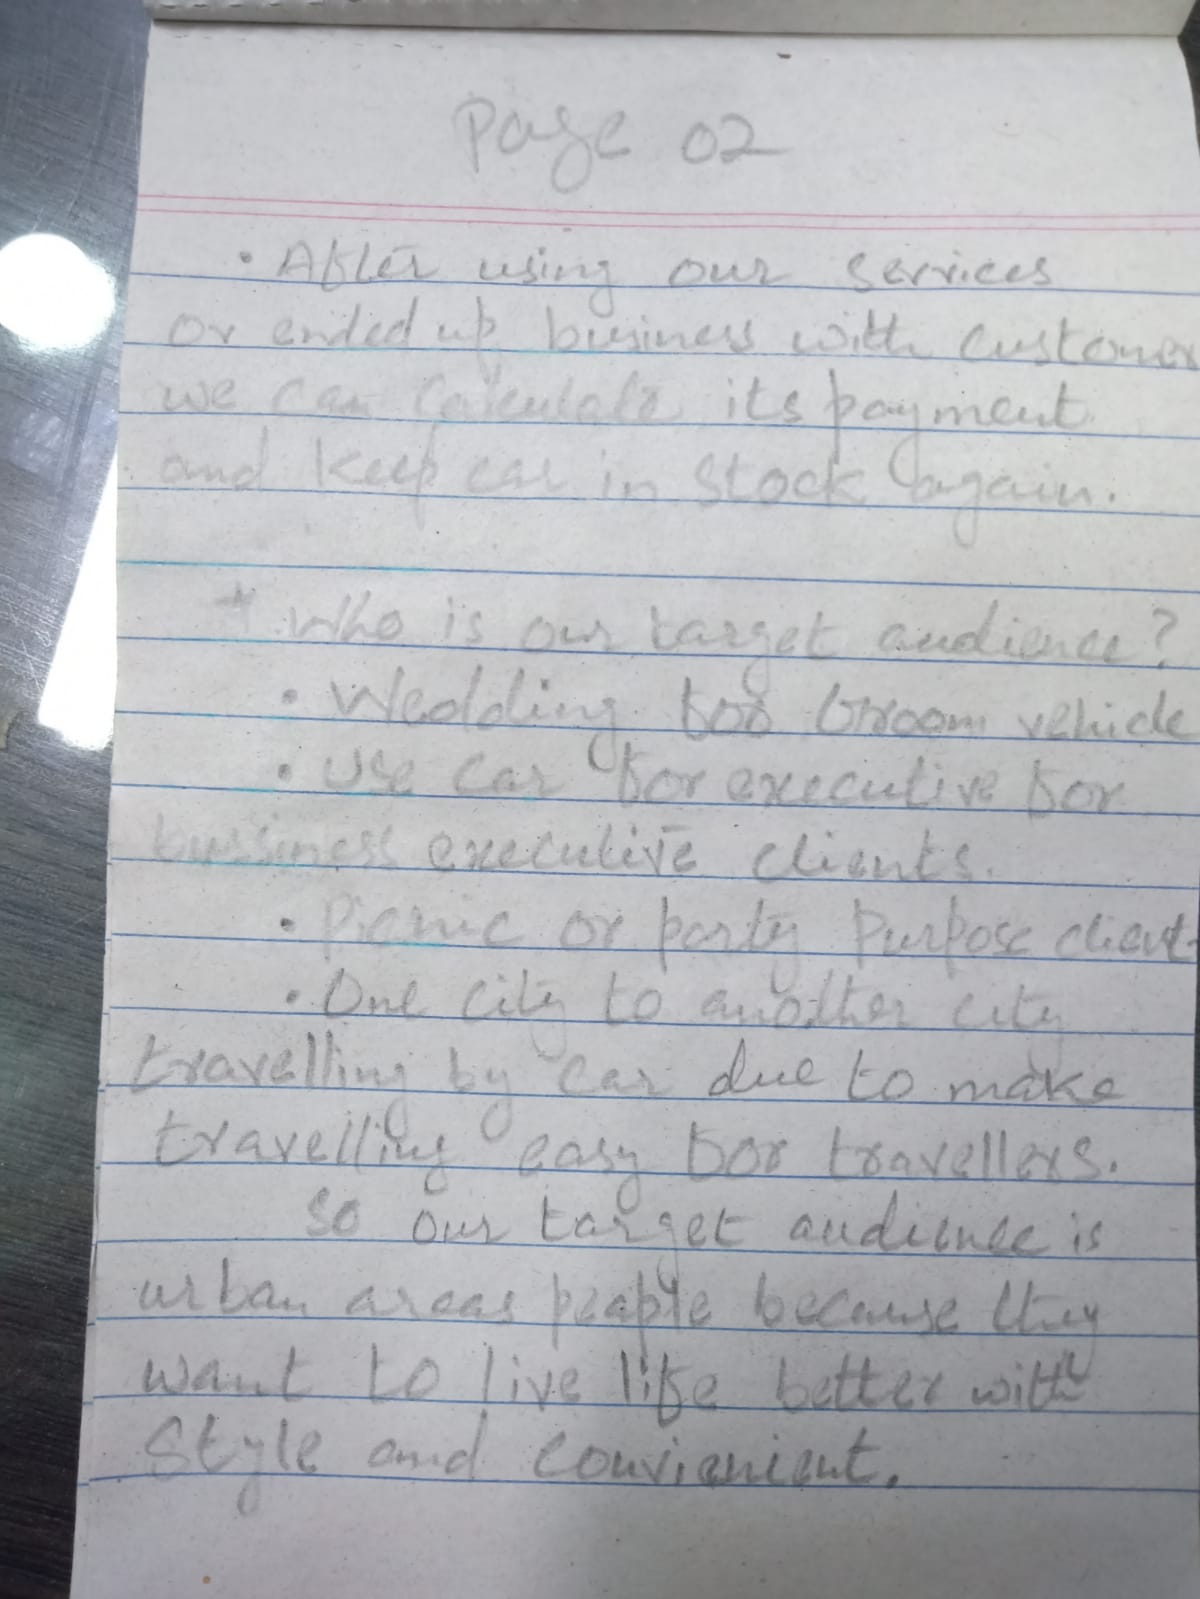 Page 02
• After using our services
or ended up business with customer
we can calculate its payment
and keep car in stock again.
* Who is our target audience?
• Wedding for Groom vehicle
• Use car for executive for
bussiness executive clients.
• Picnic or party Purpose client
• One city to another city
travelling by car due to make
travelling easy for travellers.
So our target audience is
urban areas people because they
want to live life better with
Style and convienient.